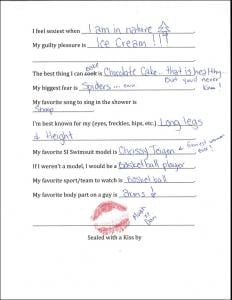 I feel sexiest when I am in nature
My guilty pleasure is Ice Cream!!!
bake
The best thing I can cook is Chocolate Cake.. that is healthy
But you'd never know!
My biggest fear is Spiders...
My favorite song to sing in the shower is
I'm best known for my (eyes, freckles, hips, etc.) Long legs
& Height
My favorite SI Swimsuit model is Chrissy Teigen
& funniest woman ever!
If I weren't a model, I would be a Basketball player
My favorite sport/team to watch is Basketball
My favorite body part on a guy is arms!
Sealed with a Kiss by